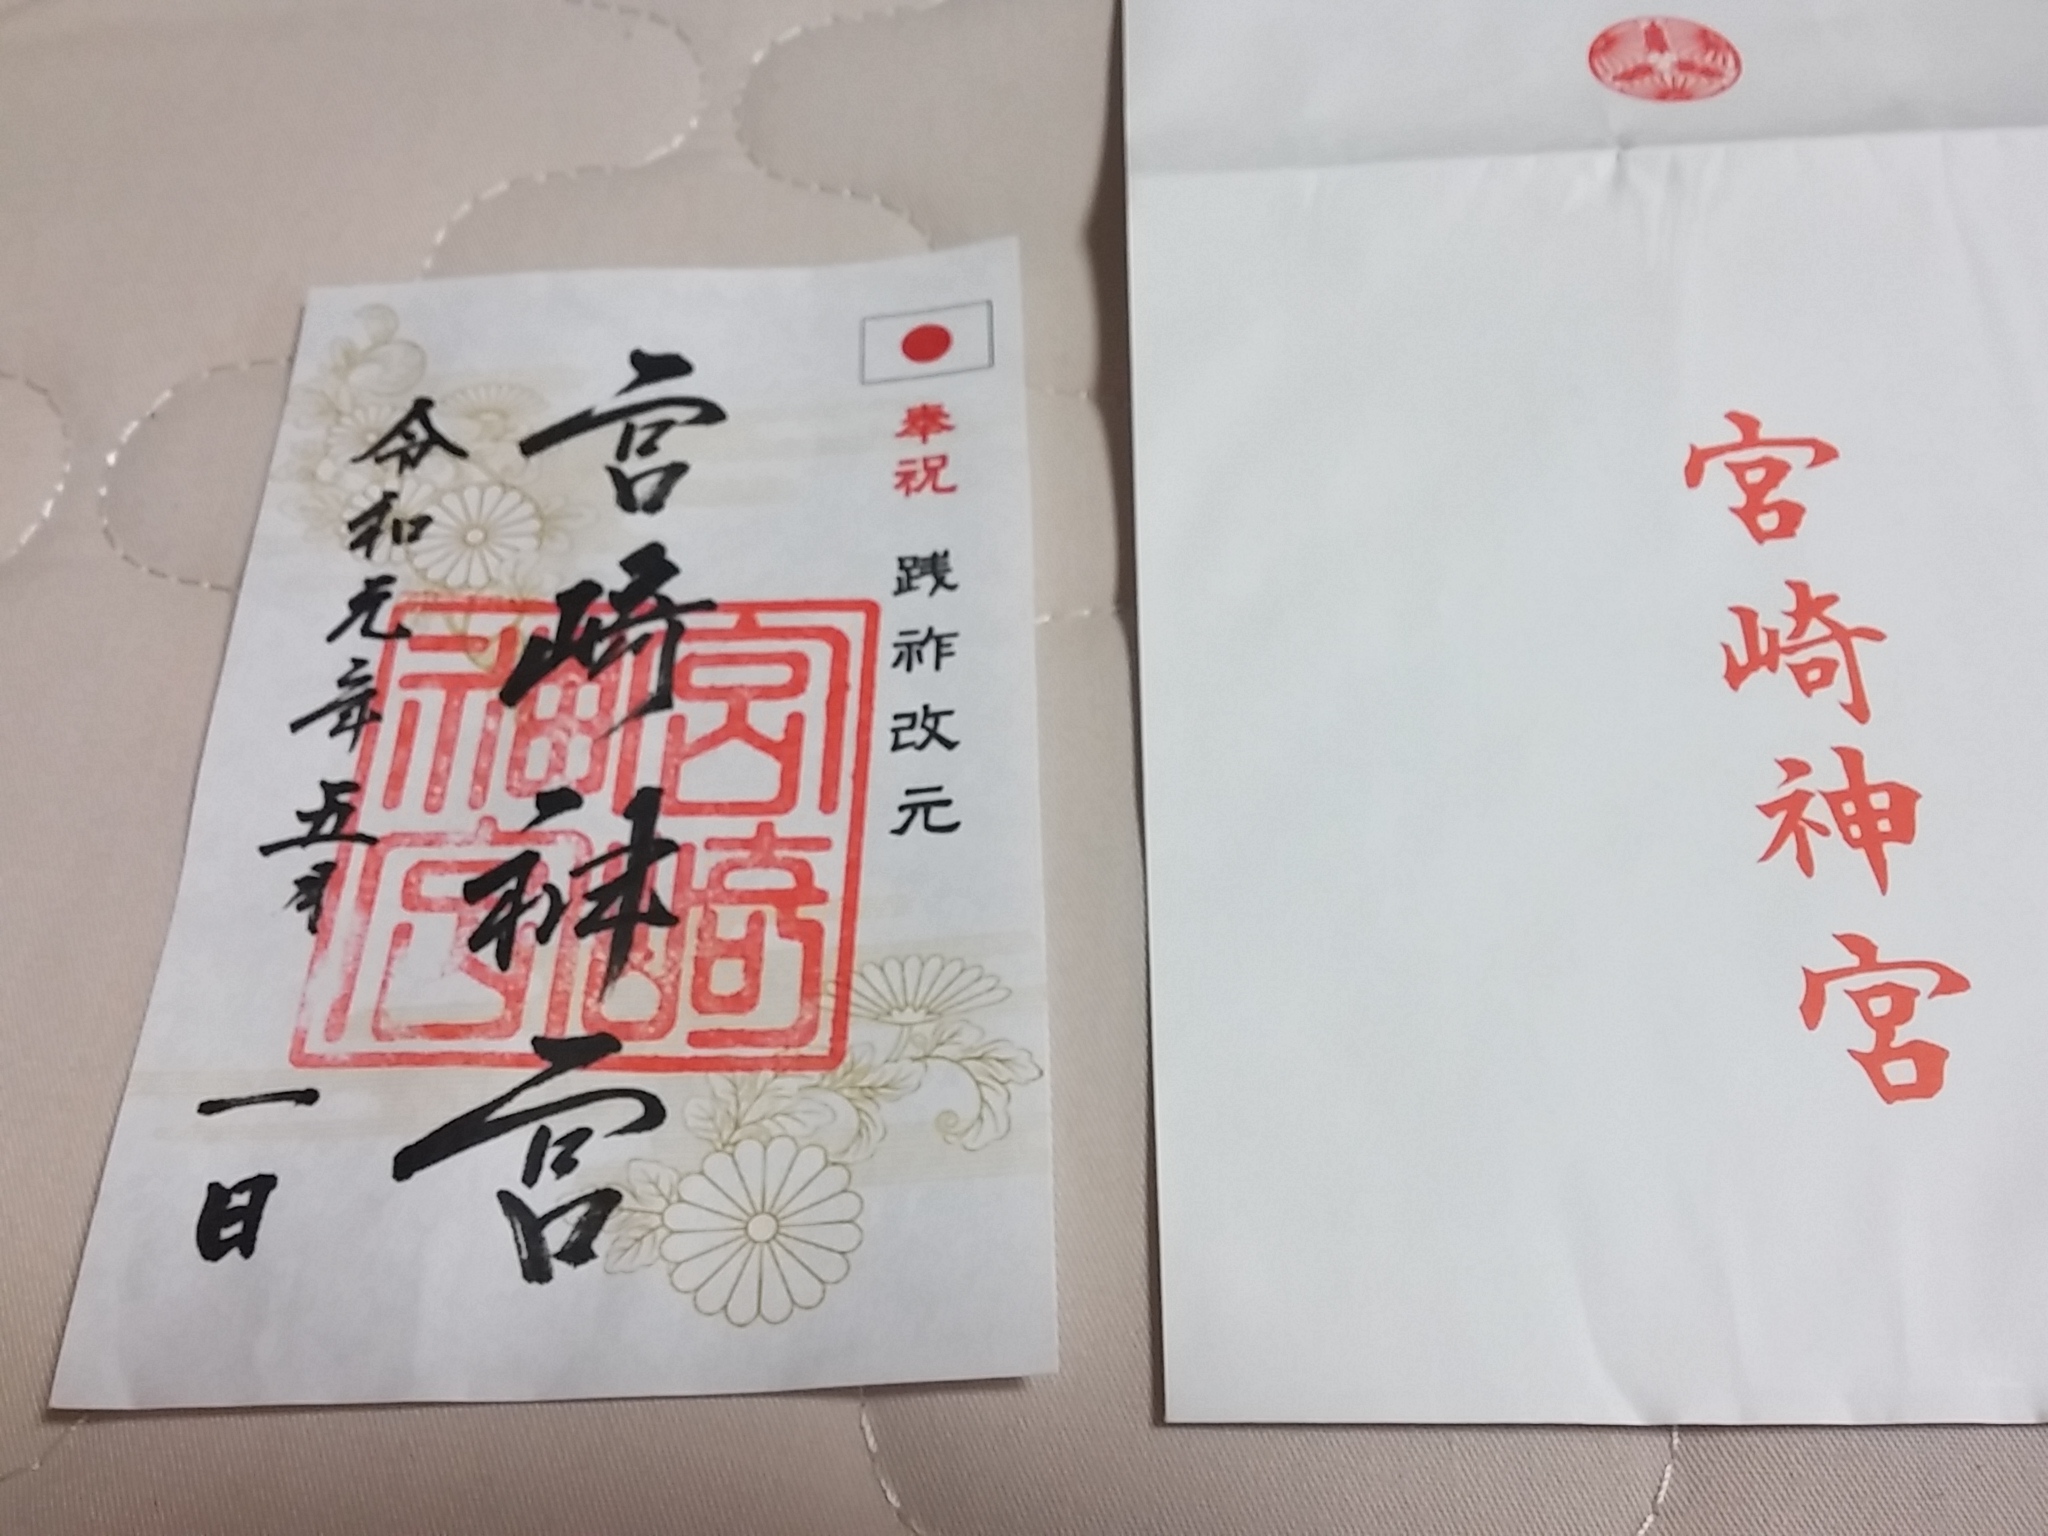 奉祝 践祚改元
宮崎神宮
宮崎神宮
令和元年五月一日
宮崎神宮